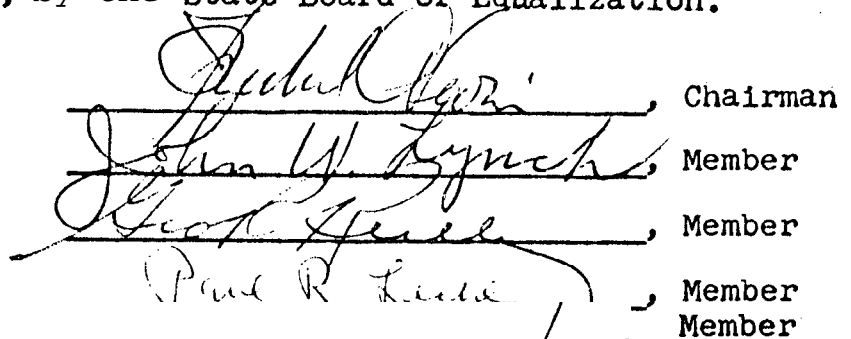 by the State Board of Equalization.
, Chairman
John W. Lynch, Member
Geo. R. Reilly, Member
Paul R. Leake, Member
Member